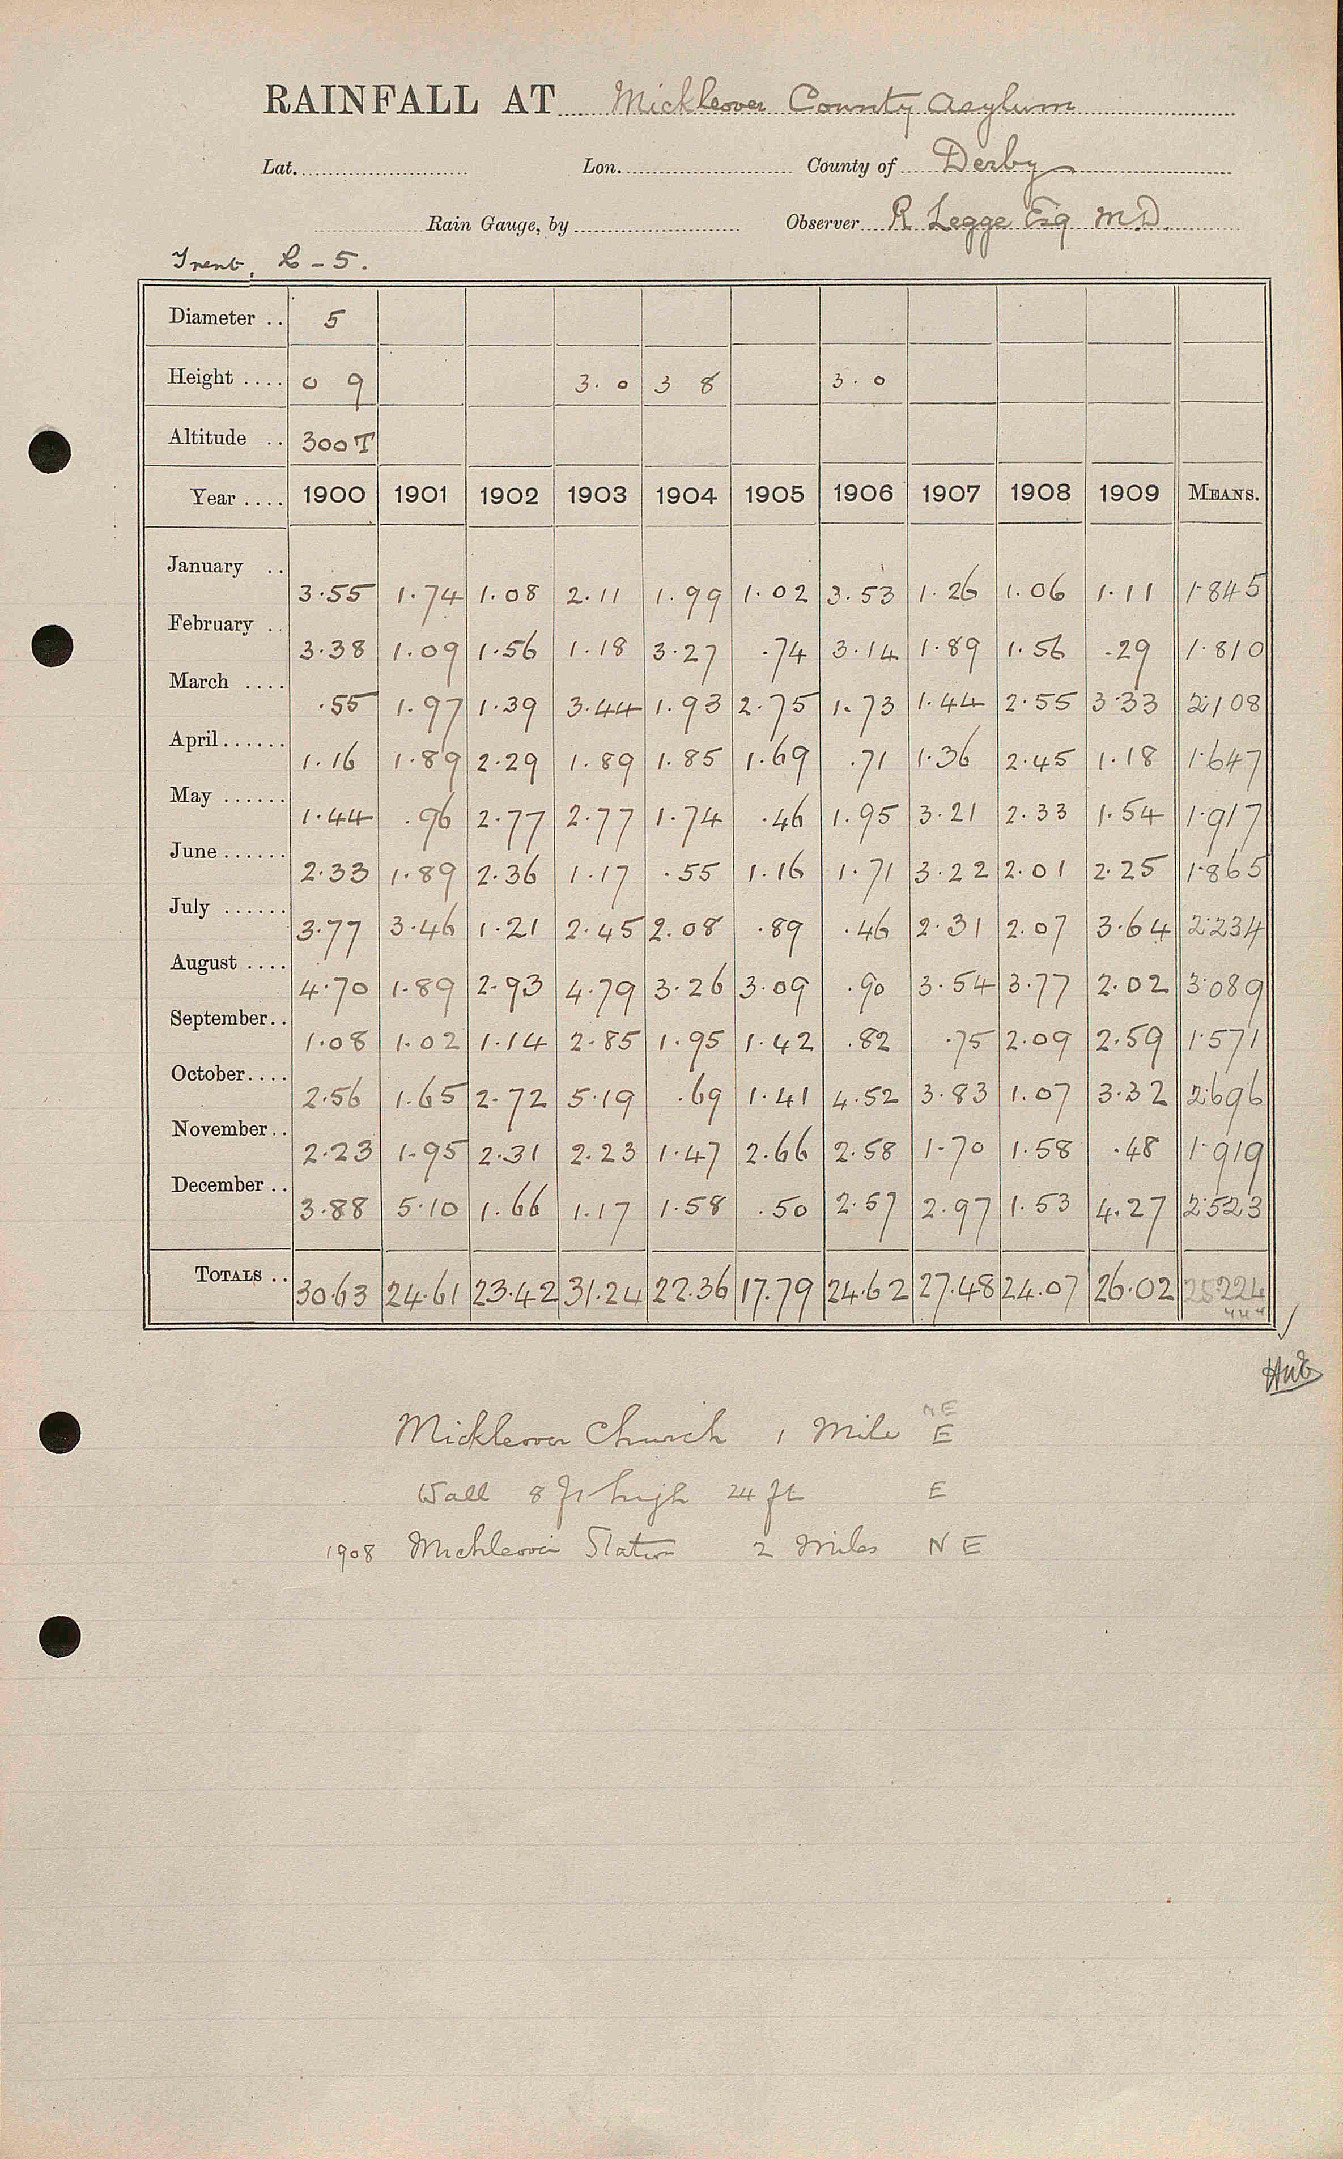 RAINFALL AT Mickleover County Asylum
Lat. Lon. County of Derby
Rain Gauge, by Observer R Legge Esq M.D.
Trent, R - 5.
Diameter .. 5
Height .... 0 9 3. 0 3 8 3. 0
Altitude .. 300T
Year .... 1900 1901 1902 1903 1904 1905 1906 1907 1908 1909 MEANS.
January .. 3.55 1.74 1.08 2.11 1.99 1.02 3.53 1.26 1.06 1.11 1.845
February .. 3.38 1.09 1.56 1.18 3.27 .74 3.14 1.89 1.56 .29 1.810
March .... .55 1.97 1.39 3.44 1.93 2.75 1.73 1.44 2.55 3.33 2.108
April...... 1.16 1.89 2.29 1.89 1.85 1.69 .71 1.36 2.45 1.18 1.647
May ...... 1.44 .96 2.77 2.77 1.74 .46 1.95 3.21 2.33 1.54 1.917
June...... 2.33 1.89 2.36 1.17 .55 1.16 1.71 3.22 2.01 2.25 1.865
July ...... 3.77 3.46 1.21 2.45 2.08 .89 .46 2.31 2.07 3.64 2.234
August .... 4.70 1.89 2.93 4.79 3.26 3.09 .90 3.54 3.77 2.02 3.089
September.. 1.08 1.02 1.14 2.85 1.95 1.42 .82 .75 2.09 2.59 1.571
October.... 2.56 1.65 2.72 5.19 .69 1.41 4.52 3.83 1.07 3.32 2.696
November.. 2.23 1.95 2.31 2.23 1.47 2.66 2.58 1.70 1.58 .48 1.919
December .. 3.88 5.10 1.66 1.17 1.58 .50 2.57 2.97 1.53 4.27 2.523
TOTALS .. 30.63 24.61 23.42 31.24 22.36 17.79 24.62 27.48 24.07 26.02 25.224
Mickleover Church 1 Mile NE E
Wall 8 ft high 24 ft E
1908 Mickleover Station 2 Miles N E